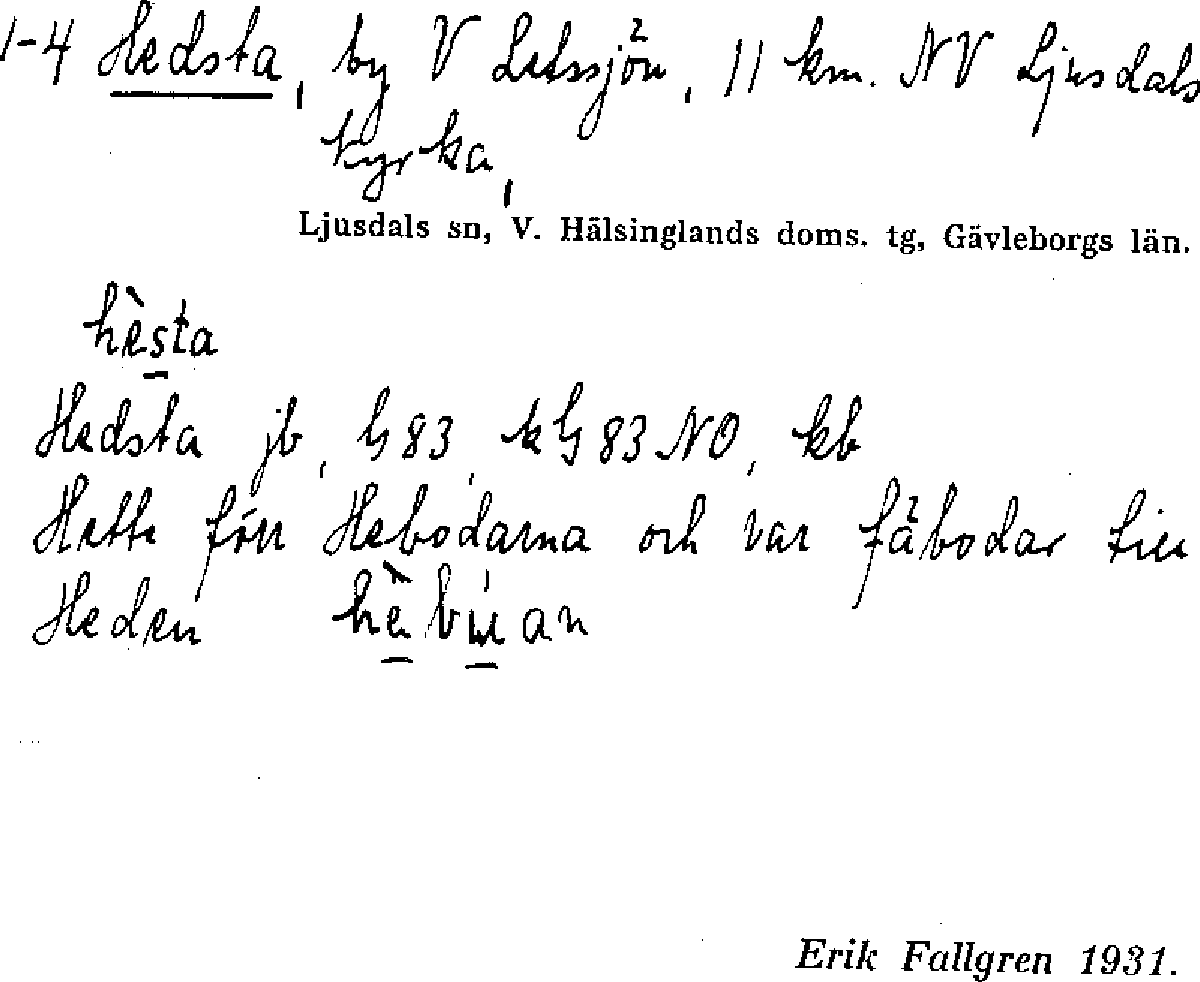 1-4 Hedsta, by V Letssjön, 11 km. NV Ljusdals
kyrka,
Ljusdals sn, V. Hälsinglands doms. tg, Gävleborgs län.
hèsta
Hedsta jb, G 83, kG 83 NO, kb
Hette förr Hebodarna och var fäbodar till
Heden
Erik Fallgren 1931.